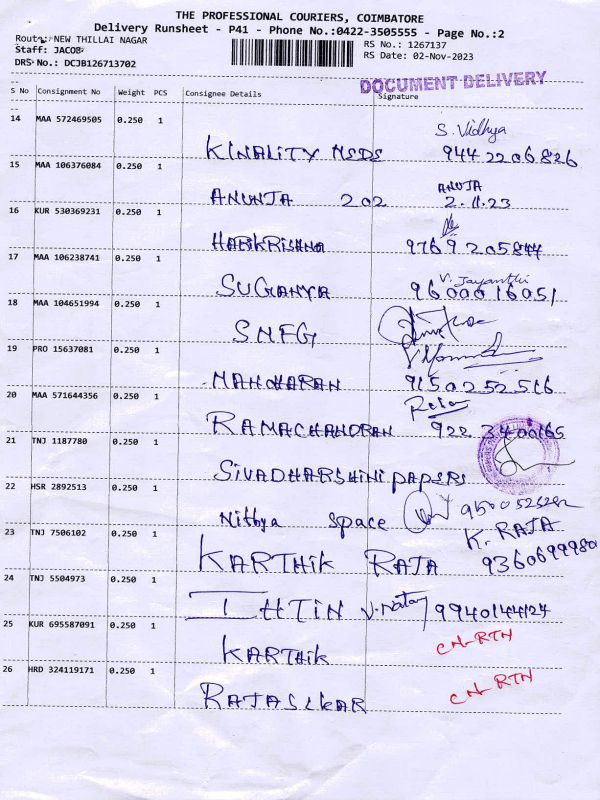 THE PROFESSIONAL COURIERS, COIMBATORE
Delivery Runsheet - P41 - Phone No.:0422-3505555 - Page No.:2
Route: NEW THILLAI NAGAR
Staff: JACOB
DRS No.: DCJB126713702
RS No.: 1267137
RS Date: 02-Nov-2023
DOCUMENT DELIVERY
S No Consignment No Weight PCS Consignee Details Signature
14 MAA 572469505 0.250 1
S. Vidhya
KINALITY MSDS 944 2206826
15 MAA 106376084 0.250 1
ANUJA
ANUNJA 202 2.11.23
16 KUR 530369231 0.250 1
HARIKRISHNA 9769205844
17 MAA 106238741 0.250 1
V. Jayanthi
SUGANYA 9600016051
18 MAA 104651994 0.250 1
SNFG
19 PRO 15637081 0.250 1
MANOHARAN 9150252516
20 MAA 571644356 0.250 1
RAMACHANDRAN 922 3400165
21 TNJ 1187780 0.250 1
SIVADHARSHINI PAPERS
22 HSR 2892513 0.250 1
Nithya space
23 TNJ 7506102 0.250 1
K. RAJA
KARTHIK RAJA 9360699980
24 TNJ 5504973 0.250 1
9940144124
25 KUR 695587091 0.250 1
KARTHIK CN-RTN
26 HRD 324119171 0.250 1
RAJASEKAR CN-RTN